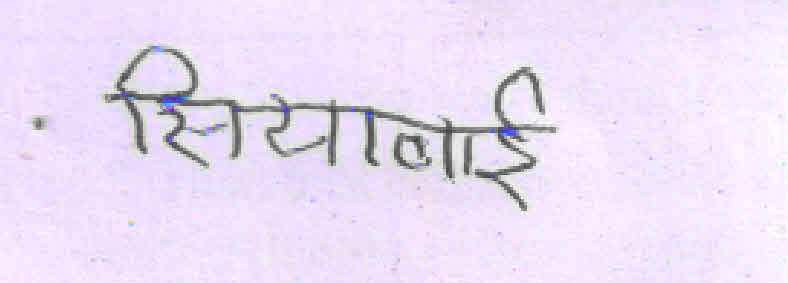 सियाबाई